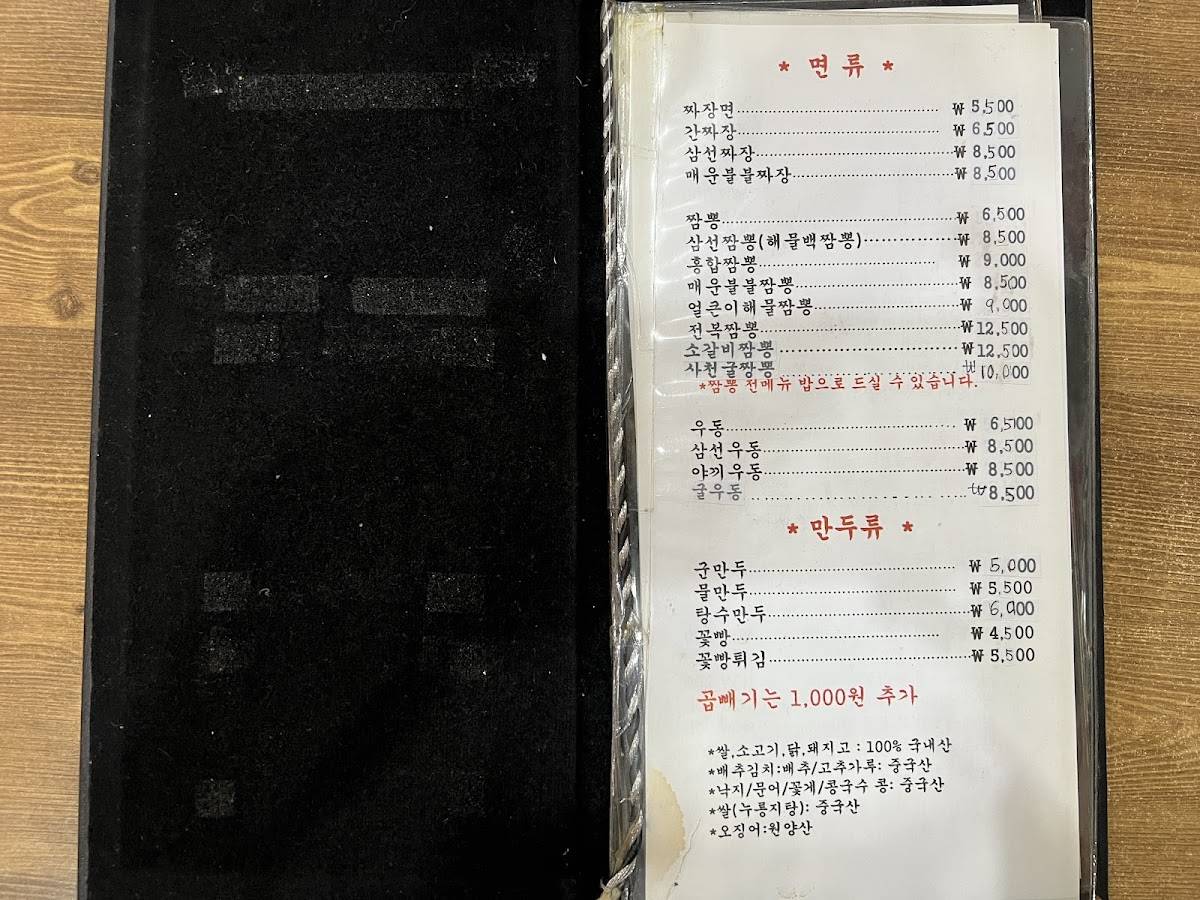 * 면 류 *
짜장면 ₩ 5,500
간짜장 ₩ 6,500
삼선짜장 ₩ 8,500
매운불불짜장 ₩ 8,500
짬뽕 ₩ 6,500
삼선짬뽕(해물백짬뽕) ₩ 8,500
홍합짬뽕 ₩ 9,000
매운불불짬뽕 ₩ 8,500
얼큰이해물짬뽕 ₩ 9,000
전복짬뽕 ₩ 12,500
소갈비짬뽕 ₩ 12,500
사천굴짱뽕 ₩ 10,000
*짬뽕 전메뉴 밥으로 드실 수 있습니다.
우동 ₩ 6,500
삼선우동 ₩ 8,500
야끼우동 ₩ 8,500
굴우동 ₩ 8,500
* 만두류 *
군만두 ₩ 5,000
물만두 ₩ 5,500
탕수만두 ₩ 6,000
꽃빵 ₩ 4,500
꽃빵튀김 ₩ 5,500
곱빼기는 1,000원 추가
*쌀,소고기,닭,돼지고 : 100% 국내산
*배추김치:배추/고추가루: 중국산
*낙지/문어/꽃게/콩국수 콩: 중국산
*쌀(누룽지탕): 중국산
*오징어:원양산